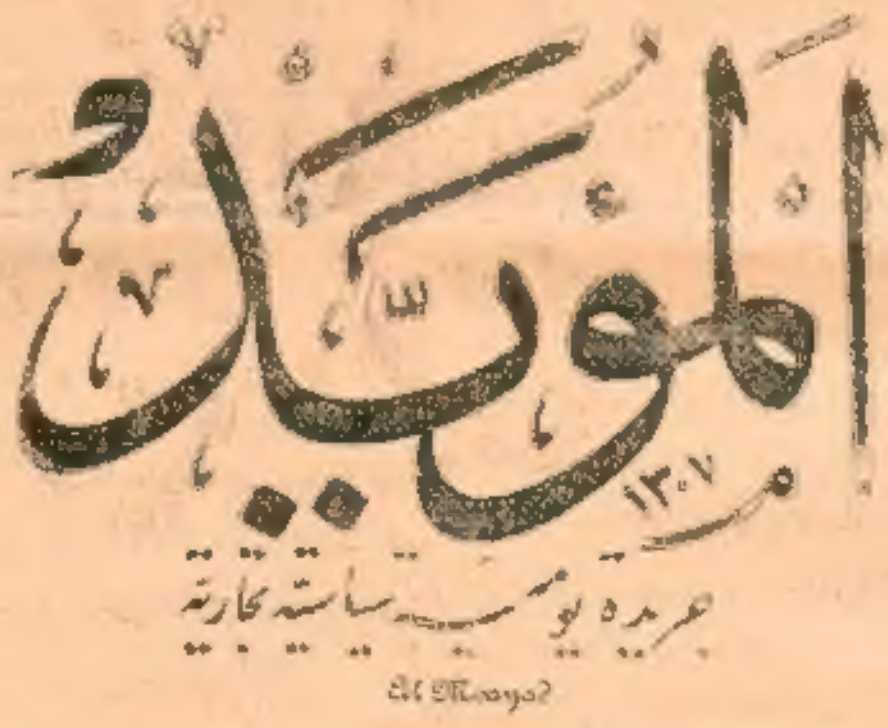 المؤيد
١٣٠٧
جريدة يومية سياسية تجارية
El Moayad